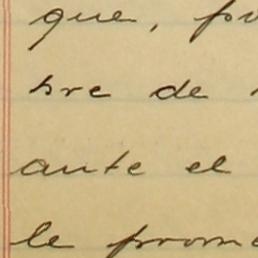 que, po
bre de
ante el
le prome